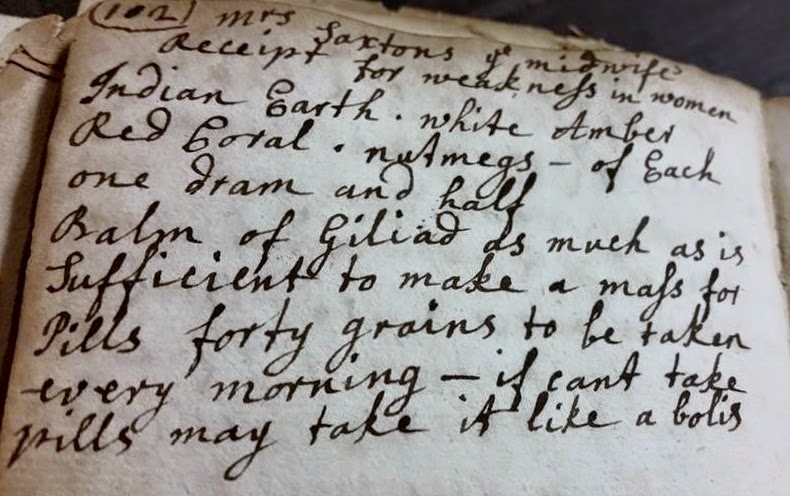 (102) mrs Saxtons ye midwife
Receipt for weakness in women
Indian Earth . white Amber
Red Coral . nutmegs – of Each
one dram and half
Balm of Giliad as much as is
Sufficient to make a mass for
Pills forty grains to be taken
every morning – if cant take
pills may take it like a bolis